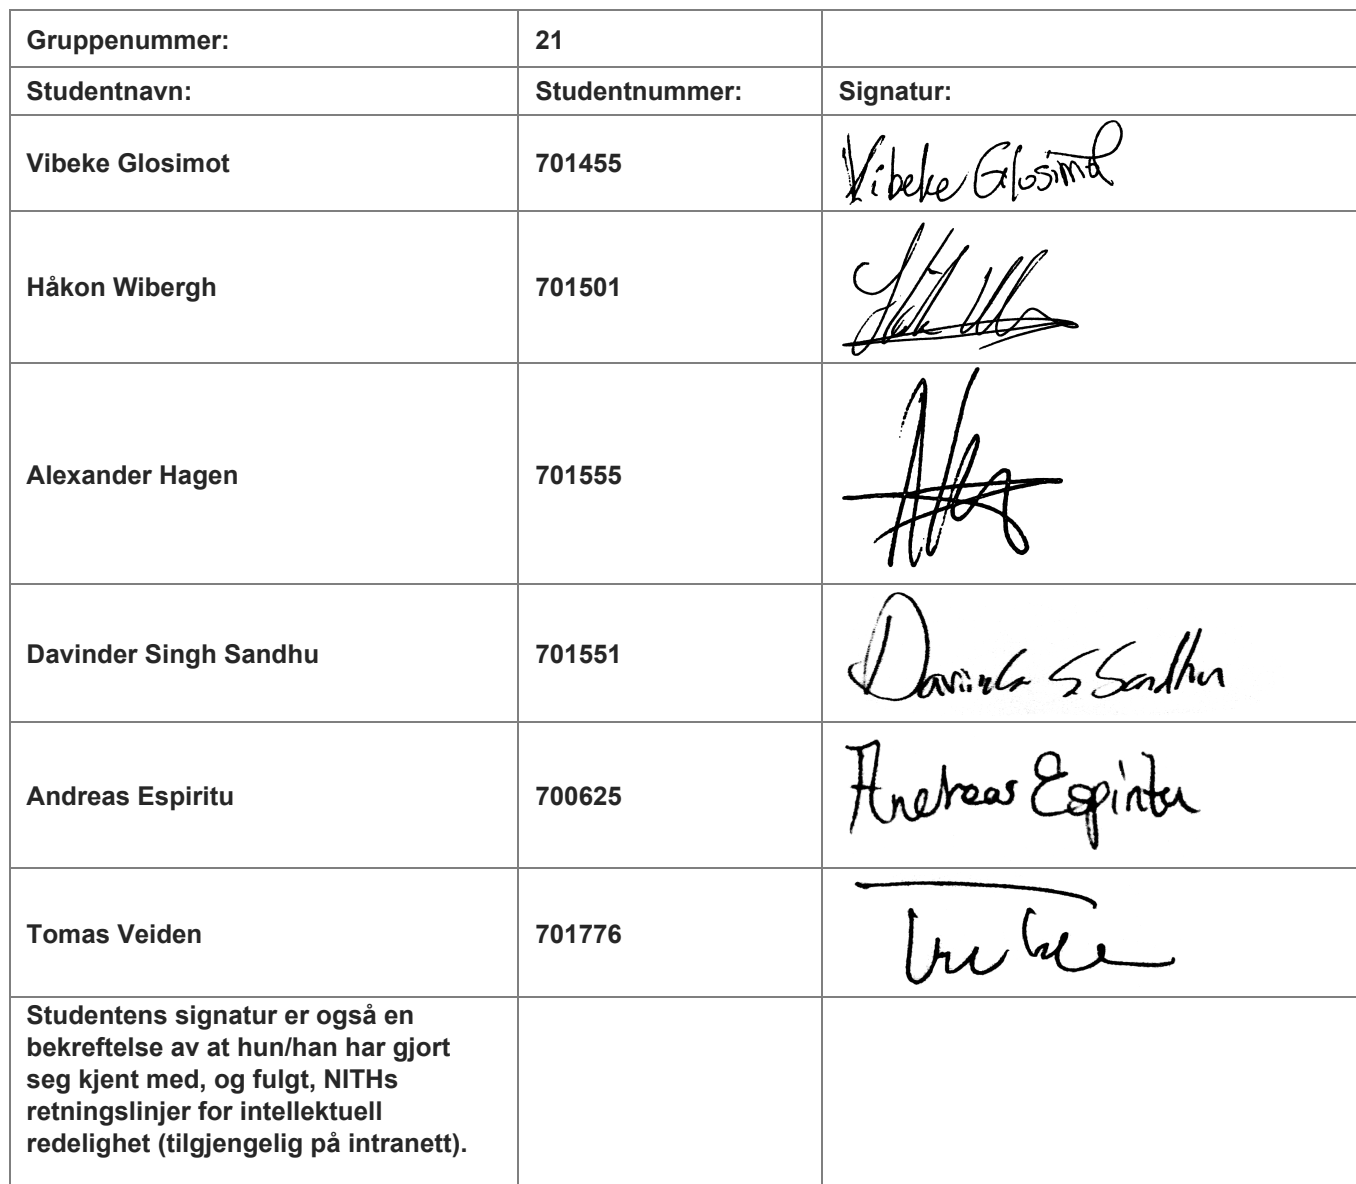 Gruppenummer: 21
Studentnavn: Studentnummer: Signatur:
Vibeke Glosimot 701455 Vibeke Glosimot
Håkon Wibergh 701501
Alexander Hagen 701555
Davinder Singh Sandhu 701551 Davinder S Sandhu
Andreas Espiritu 700625 Andreas Espiritu
Tomas Veiden 701776
Studentens signatur er også en
bekreftelse av at hun/han har gjort
seg kjent med, og fulgt, NITHs
retningslinjer for intellektuell
redelighet (tilgjengelig på intranett).